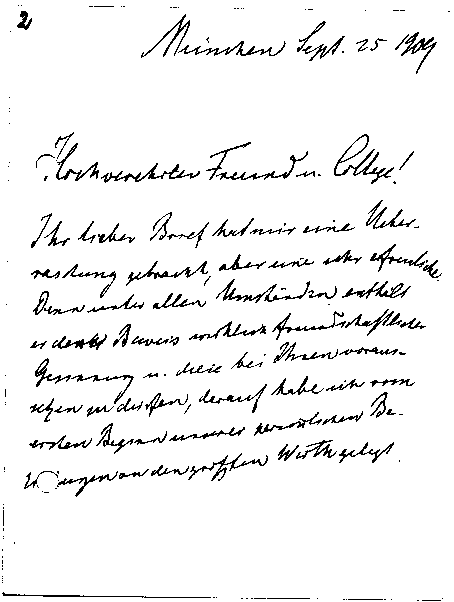 2
München Sept. 25 1909
Hochverehrter Freund u. College!
Ihr lieber Brief hat mir eine Ueber-
raschung gebracht, aber eine sehr erfreuliche.
Denn unter allen Umständen enthält
er den Beweis wirklich freundschaftlicher
Gesinnung u. diese bei Ihnen voraus-
setzen zu dürfen, darauf habe ich vom
ersten Beginn unserer persönlichen Be-
ziehungen an den größten Werth gelegt.